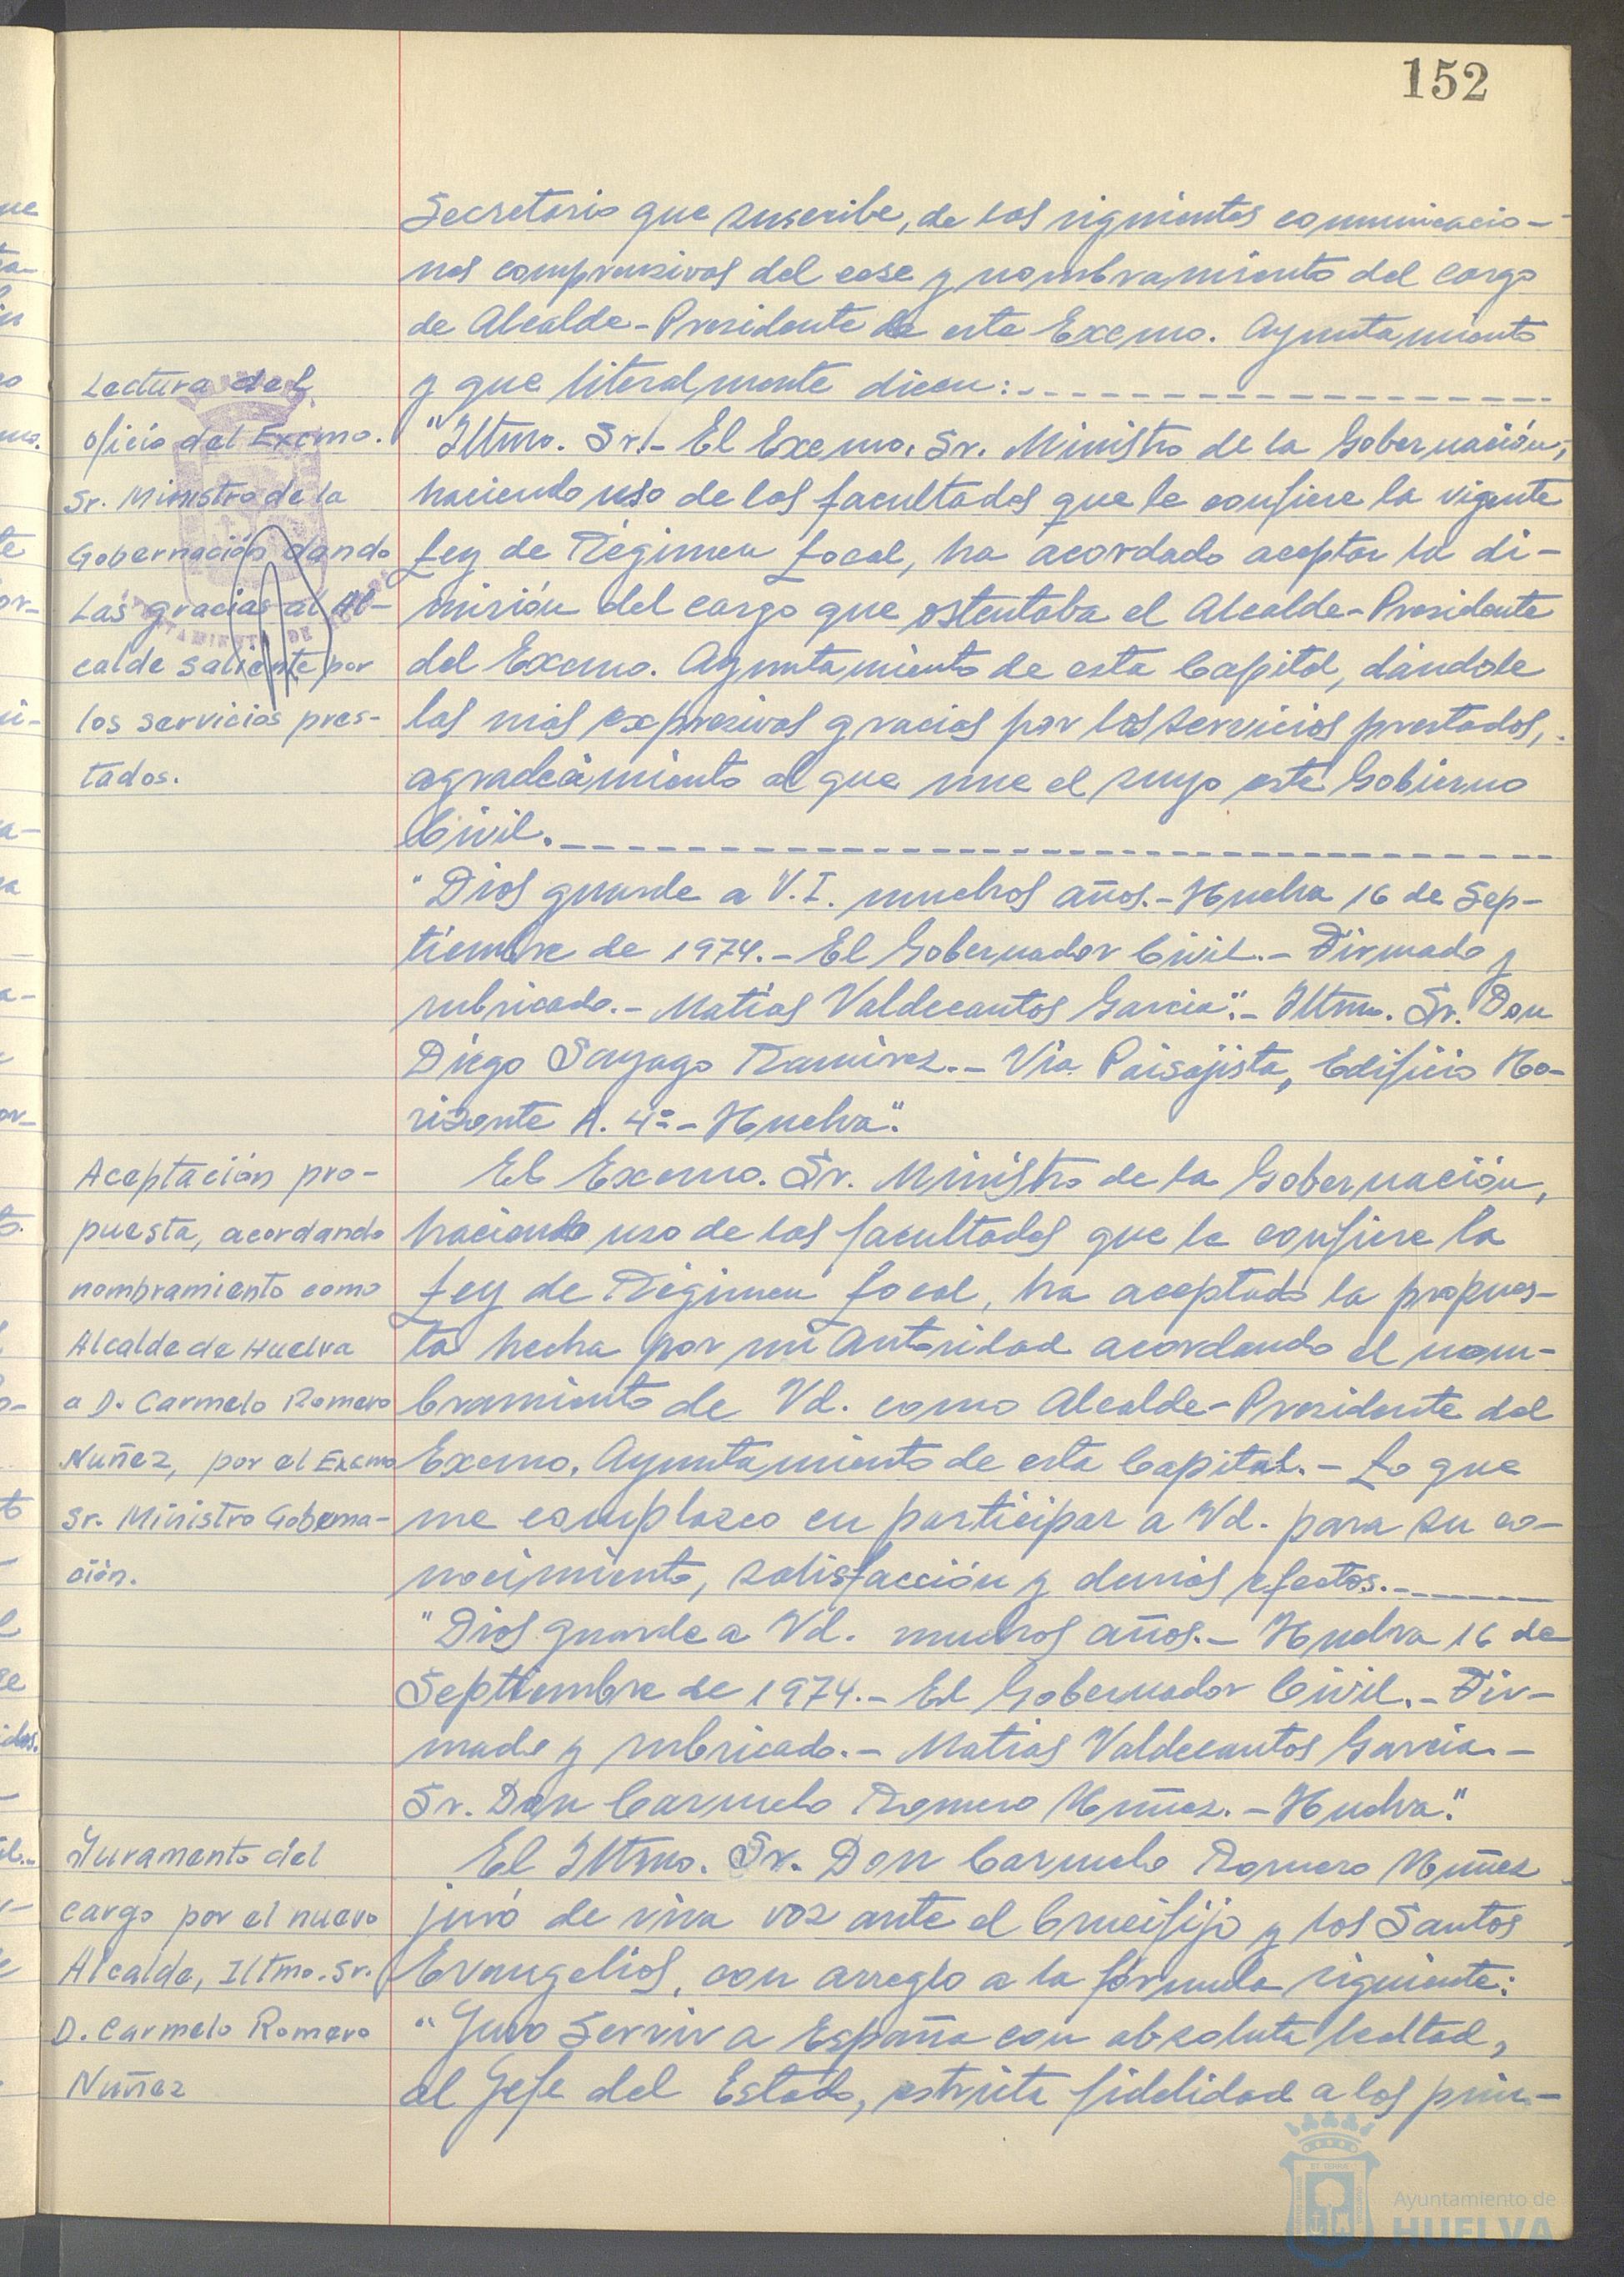 152
Secretario que suscribe, de las siguientes comunicacio-
nes comprensivas del cese y nombramiento del cargo
de Alcalde-Presidente de este Excmo. Ayuntamiento
y que literalmente dicen:
Lectura del
oficio del Excmo.
Sr. Ministro de la
Gobernación dando
las gracias al Al-
calde saliente por
los servicios pres-
tados.
"Iltmo. Sr.- El Excmo. Sr. Ministro de la Gobernación,
haciendo uso de las facultades que le confiere la vigente
Ley de Régimen Local, ha acordado aceptar la di-
misión del cargo que ostentaba el Alcalde-Presidente
del Excmo. Ayuntamiento de esta Capital, dándole
las más expresivas gracias por los servicios prestados,
agradecimiento al que une el suyo este Gobierno
Civil.
"Dios guarde a V.I. muchos años.- Huelva 16 de Sep-
tiembre de 1974.- El Gobernador Civil.- Firmado y
rubricado.- Matías Valdecantos García".- Iltmo. Sr. Don
Diego Sayago Ramírez.- Vía Paisajista, Edificio Ho-
rizonte A. 4º- Huelva".
Aceptación pro-
puesta, acordando
nombramiento como
Alcalde de Huelva
a D. Carmelo Romero
Nuñez, por el Excmo
Sr. Ministro Goberna-
ción.
El Excmo. Sr. Ministro de la Gobernación,
haciendo uso de las facultades que le confiere la
Ley de Régimen Local, ha aceptado la propues-
ta hecha por mi Autoridad acordando el nom-
bramiento de Vd. como Alcalde-Presidente del
Excmo. Ayuntamiento de esta Capital.- Lo que
me complazco en participar a Vd. para su co-
nocimiento, satisfacción y demás efectos.
"Dios guarde a Vd. muchos años.- Huelva 16 de
Septiembre de 1974.- El Gobernador Civil.- Fir-
mado y rubricado.- Matias Valdecantos García.-
Sr. Don Carmelo Romero Nuñez.- Huelva."
Juramento del
cargo por el nuevo
Alcalde, Iltmo. Sr.
D. Carmelo Romero
Nuñez
El Iltmo. Sr. Don Carmelo Romero Nuñez
juró de viva voz ante el Crucifijo y los Santos
Evangelios, con arreglo a la fórmula siguiente:
"Juro Servir a España con absoluta lealtad,
al Jefe del Estado, estricta fidelidad a los prin-
Ayuntamiento de
HUELVA